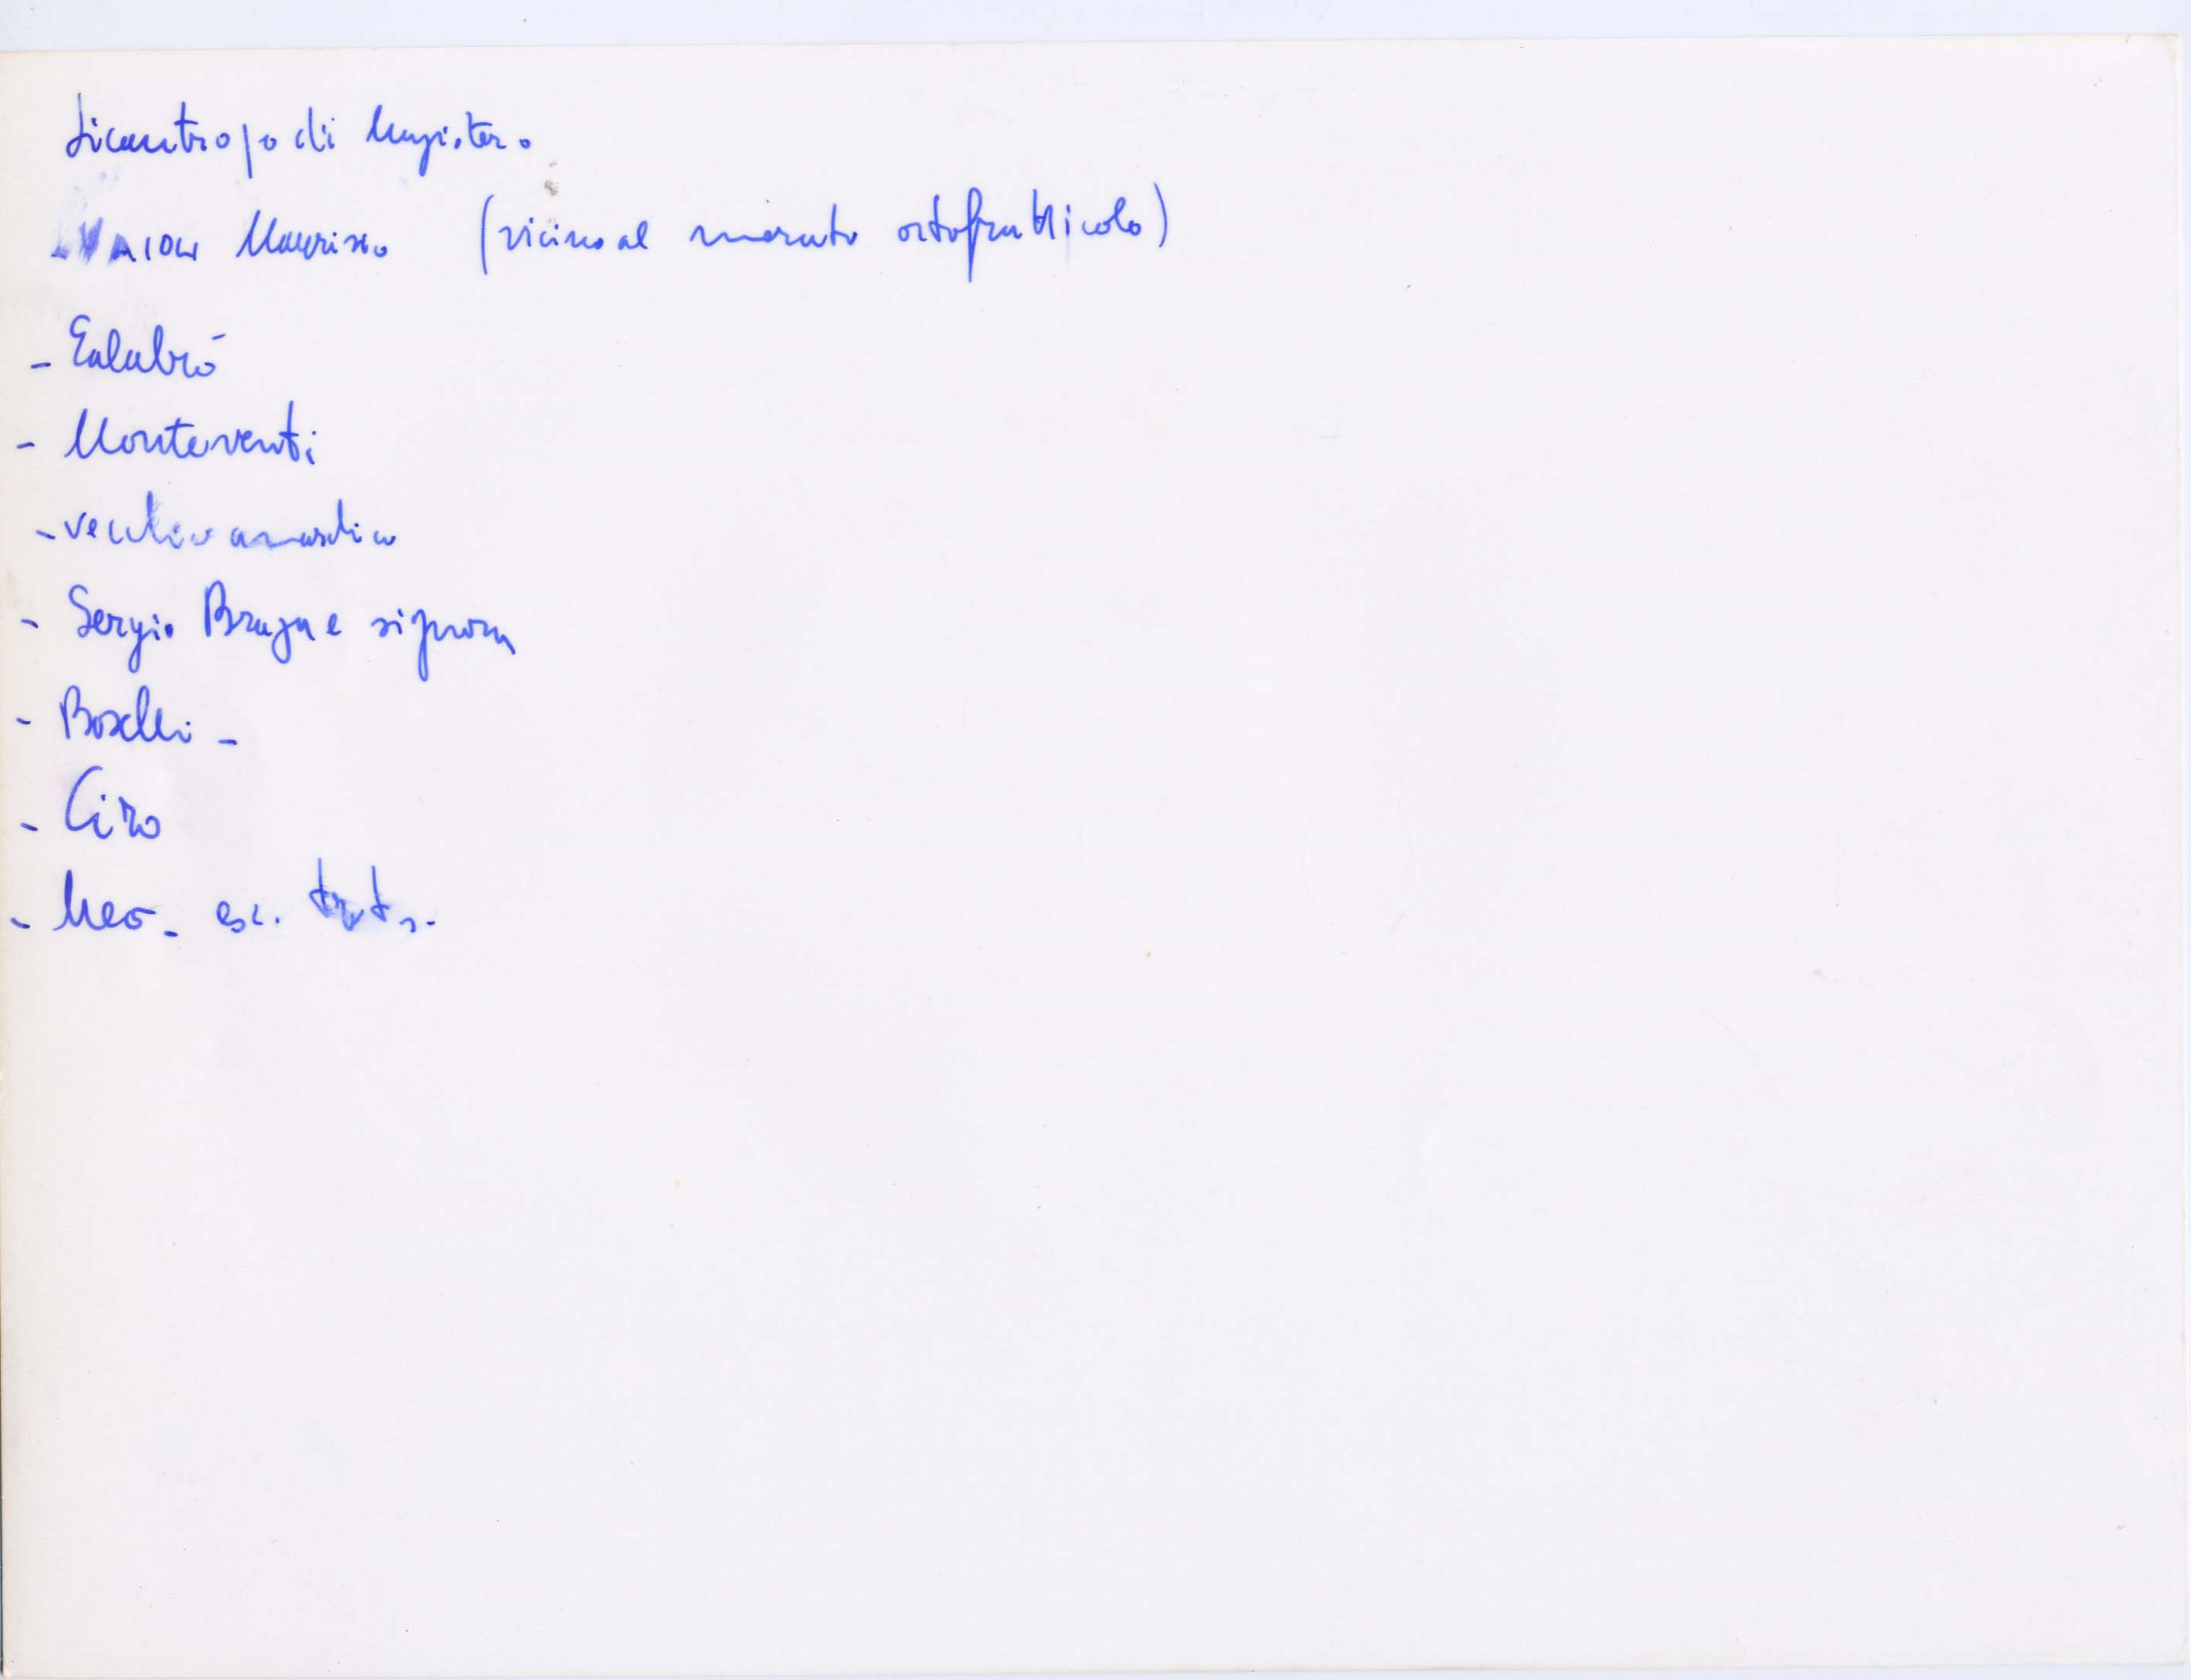 Licantropo di Magistero
Maurizio (vicino al mercato ortofrutticolo)
- Calabrò
- Monteventi
- vecchio anarchico
- Sergio Braga e signora
- Boselli -
- Ciro
- Meo -